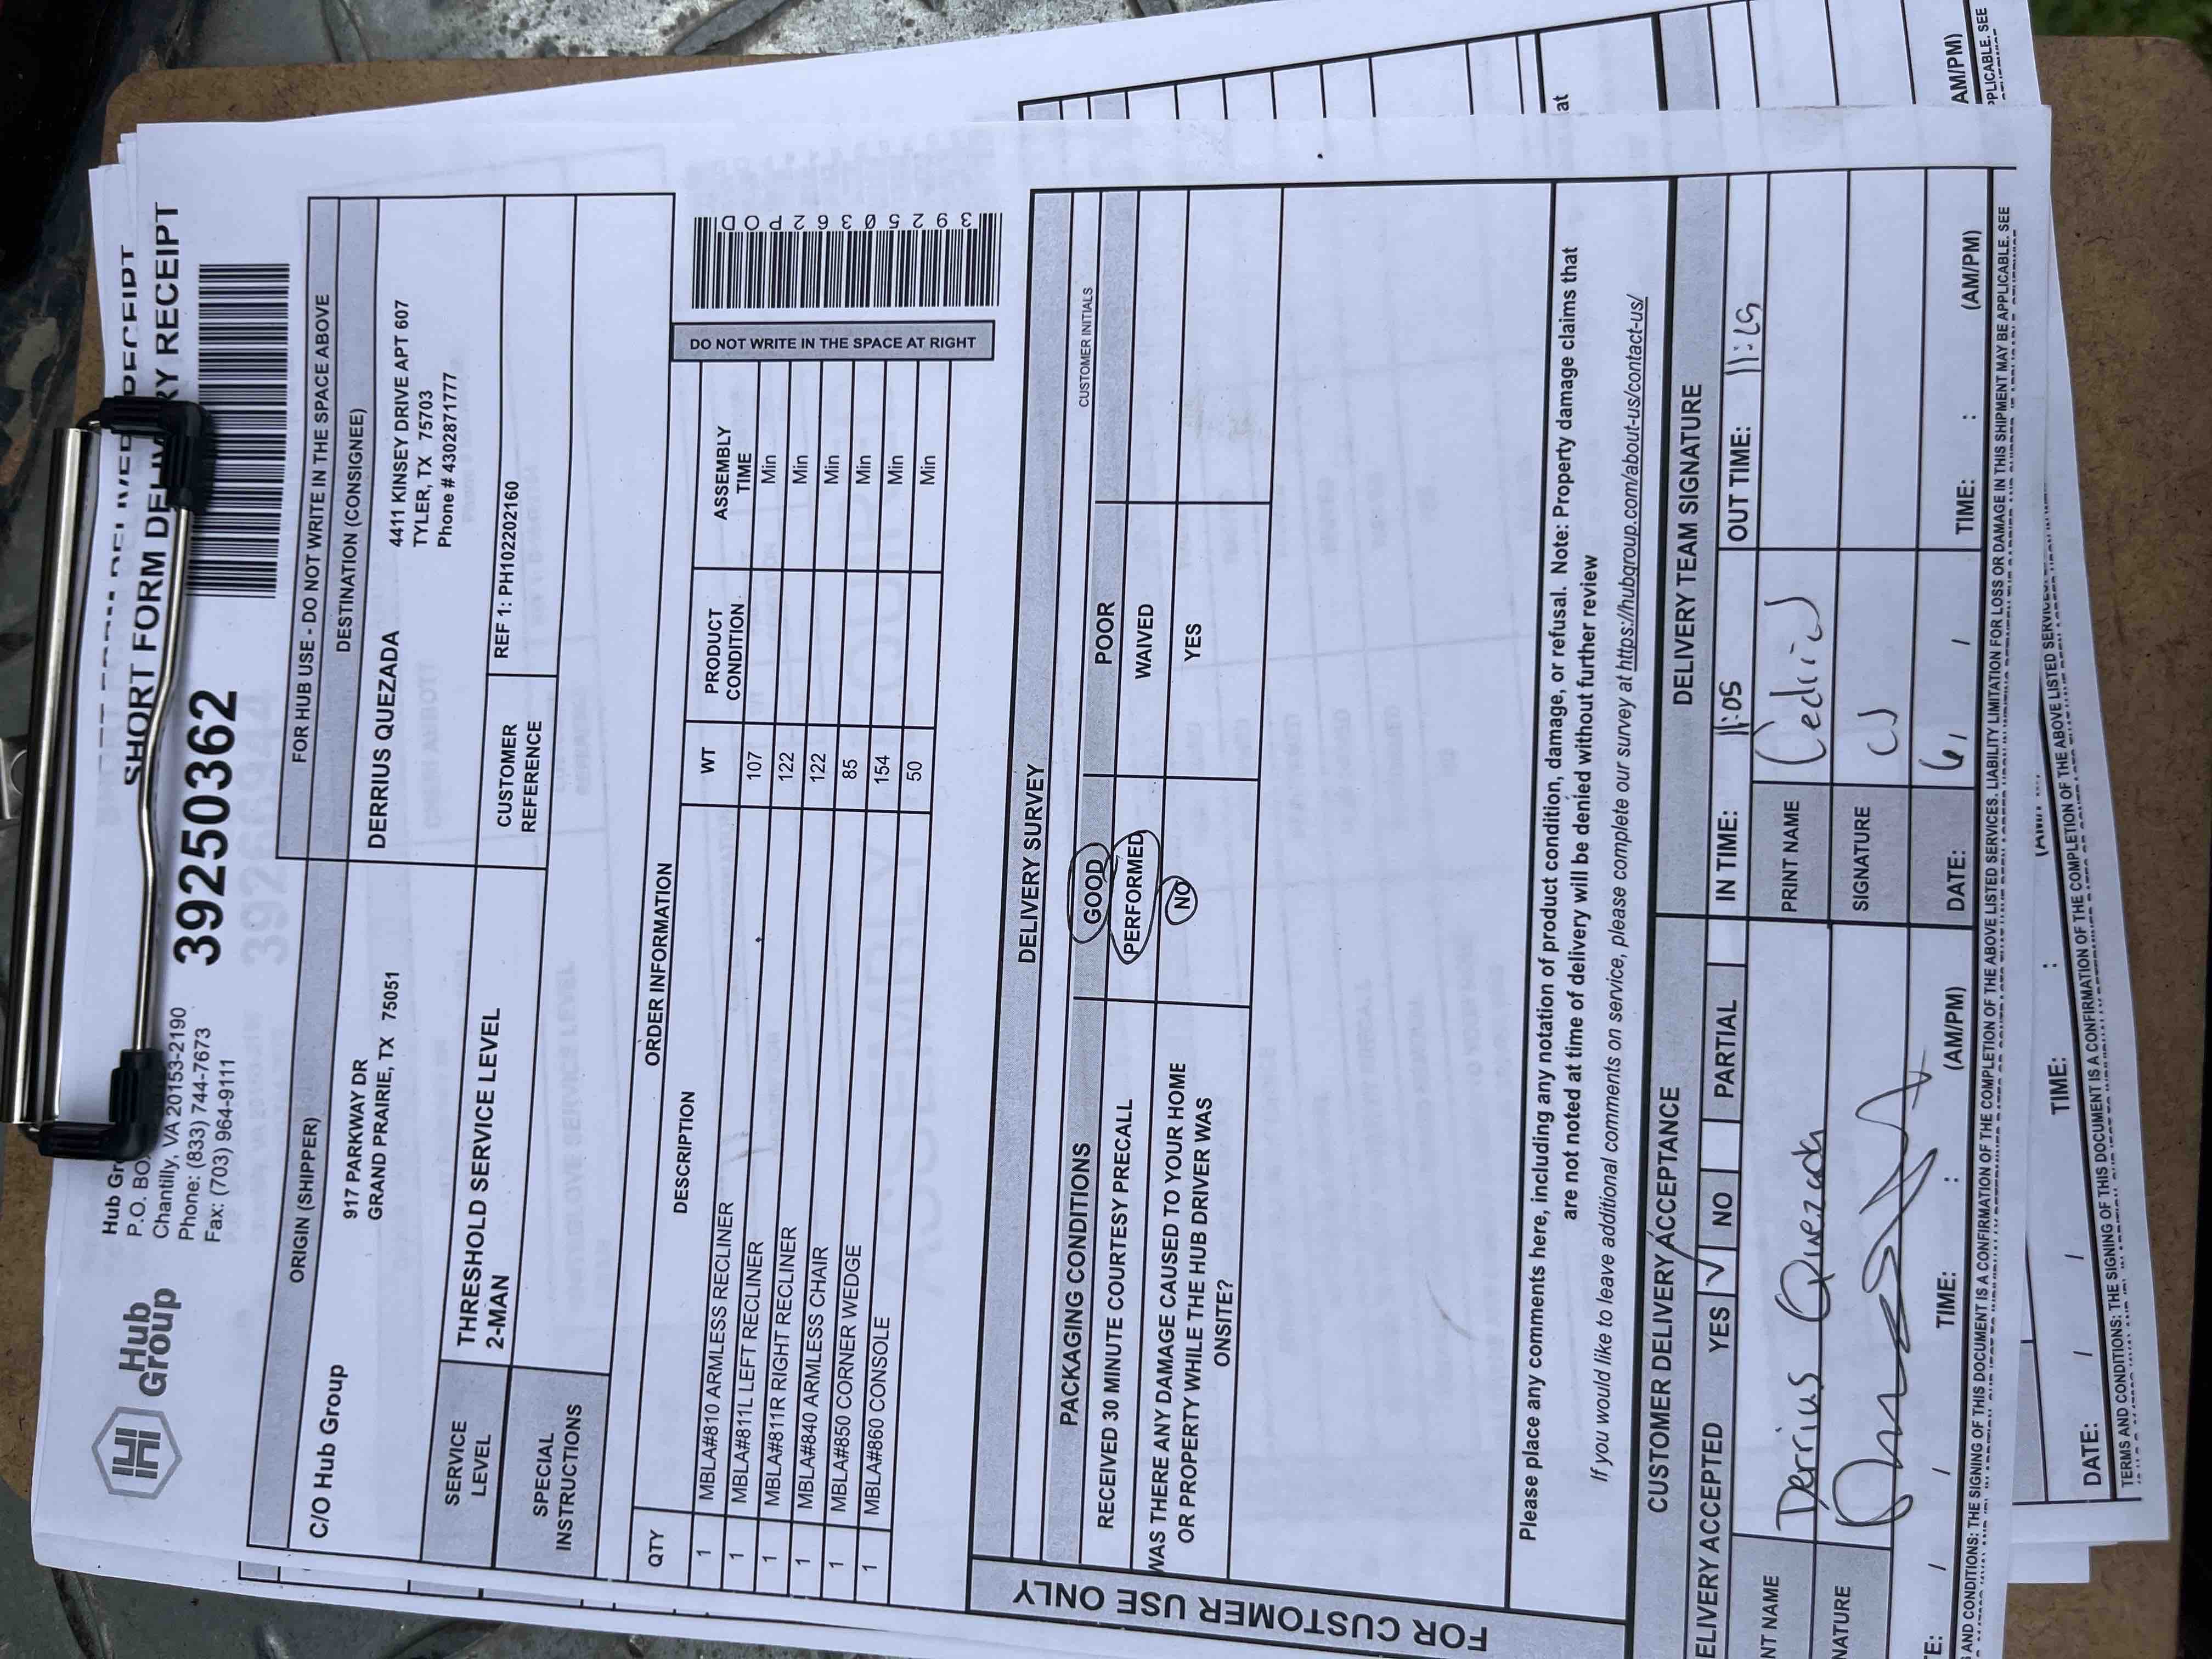 Hub
Group
Hub Gr
P.O. BO
Chantilly, VA 20153-2190
Phone: (833) 744-7673
Fax: (703) 964-9111
SHORT FORM DELIVERY RECEIPT
39250362
ORIGIN (SHIPPER)
C/O Hub Group
917 PARKWAY DR
GRAND PRAIRIE, TX 75051
FOR HUB USE - DO NOT WRITE IN THE SPACE ABOVE
DESTINATION (CONSIGNEE)
DERRIUS QUEZADA
4411 KINSEY DRIVE APT 607
TYLER, TX 75703
Phone # 4302871777
SERVICE LEVEL
THRESHOLD SERVICE LEVEL
2-MAN
CUSTOMER REFERENCE
REF 1: PH102202160
SPECIAL INSTRUCTIONS
ORDER INFORMATION
QTY DESCRIPTION WT PRODUCT CONDITION ASSEMBLY TIME
1 MBLA#810 ARMLESS RECLINER 107 Min
1 MBLA#811L LEFT RECLINER 122 Min
1 MBLA#811R RIGHT RECLINER 122 Min
1 MBLA#840 ARMLESS CHAIR 85 Min
1 MBLA#850 CORNER WEDGE 154 Min
1 MBLA#860 CONSOLE 50 Min
DO NOT WRITE IN THE SPACE AT RIGHT
39250362POD
FOR CUSTOMER USE ONLY
DELIVERY SURVEY
CUSTOMER INITIALS
PACKAGING CONDITIONS GOOD POOR
RECEIVED 30 MINUTE COURTESY PRECALL PERFORMED WAIVED
WAS THERE ANY DAMAGE CAUSED TO YOUR HOME
OR PROPERTY WHILE THE HUB DRIVER WAS
ONSITE? NO YES
Please place any comments here, including any notation of product condition, damage, or refusal. Note: Property damage claims that
are not noted at time of delivery will be denied without further review
If you would like to leave additional comments on service, please complete our survey at https://hubgroup.com/about-us/contact-us/
CUSTOMER DELIVERY ACCEPTANCE DELIVERY TEAM SIGNATURE
ELIVERY ACCEPTED YES NO PARTIAL IN TIME: 11:05 OUT TIME: 11:29
NT NAME Derrius Quezada PRINT NAME Cedric J
NATURE SIGNATURE CJ
TE: / / TIME: : (AM/PM) DATE: 6/1 / TIME: : (AM/PM)
S AND CONDITIONS: THE SIGNING OF THIS DOCUMENT IS A CONFIRMATION OF THE COMPLETION OF THE ABOVE LISTED SERVICES. LIABILITY LIMITATION FOR LOSS OR DAMAGE IN THIS SHIPMENT MAY BE APPLICABLE. SEE
DATE: / / TIME: : (AM/
TERMS AND CONDITIONS: THE SIGNING OF THIS DOCUMENT IS A CONFIRMATION OF THE COMPLETION OF THE ABOVE LISTED SERVICES.
at
AM/PM)
PPLICABLE. SEE